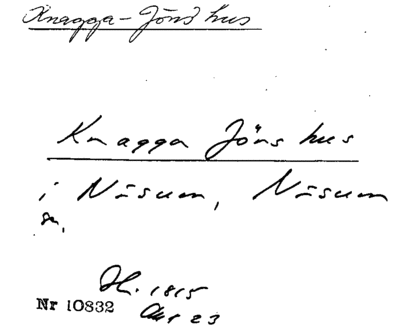 Knagga-Jöns hus
Knagga Jöns hus
i Näsum, Näsum
sn.
H. 1815
Nr 10832
Akt 23